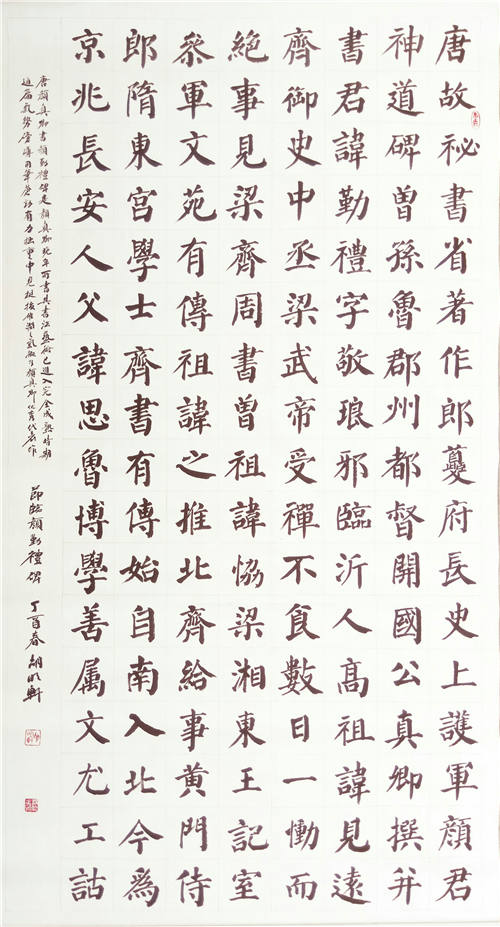 唐故祕書省著作郎夔府長史上護軍顏君
神道碑曽孫魯郡州都督開國公真卿撰并
書君諱勤禮字敬琅邪臨沂人高祖諱見遠
齊御史中丞梁武帝受禪不食數日一慟而
絕事見梁齊周書曽祖諱恊梁湘東王記室
參軍文苑有傳祖諱之推北齊給事黃門侍
郎隋東宮學士齊書有傳始自南入北今為
京兆長安人父諱思魯博學善属文尤工詁
唐顏真卿書顏勤禮碑是顏真卿晚年所書其書法藝術已進入完全成熟時期
有力 顏真卿 代表作
節臨顏勤禮碑 丁酉春 軒